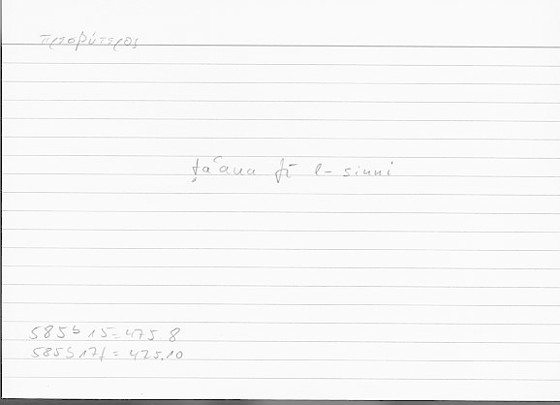 πρεσβύτερος
ṭaʿana fī l-sinni
585b 15 = 475.8
585b 17f = 425.10